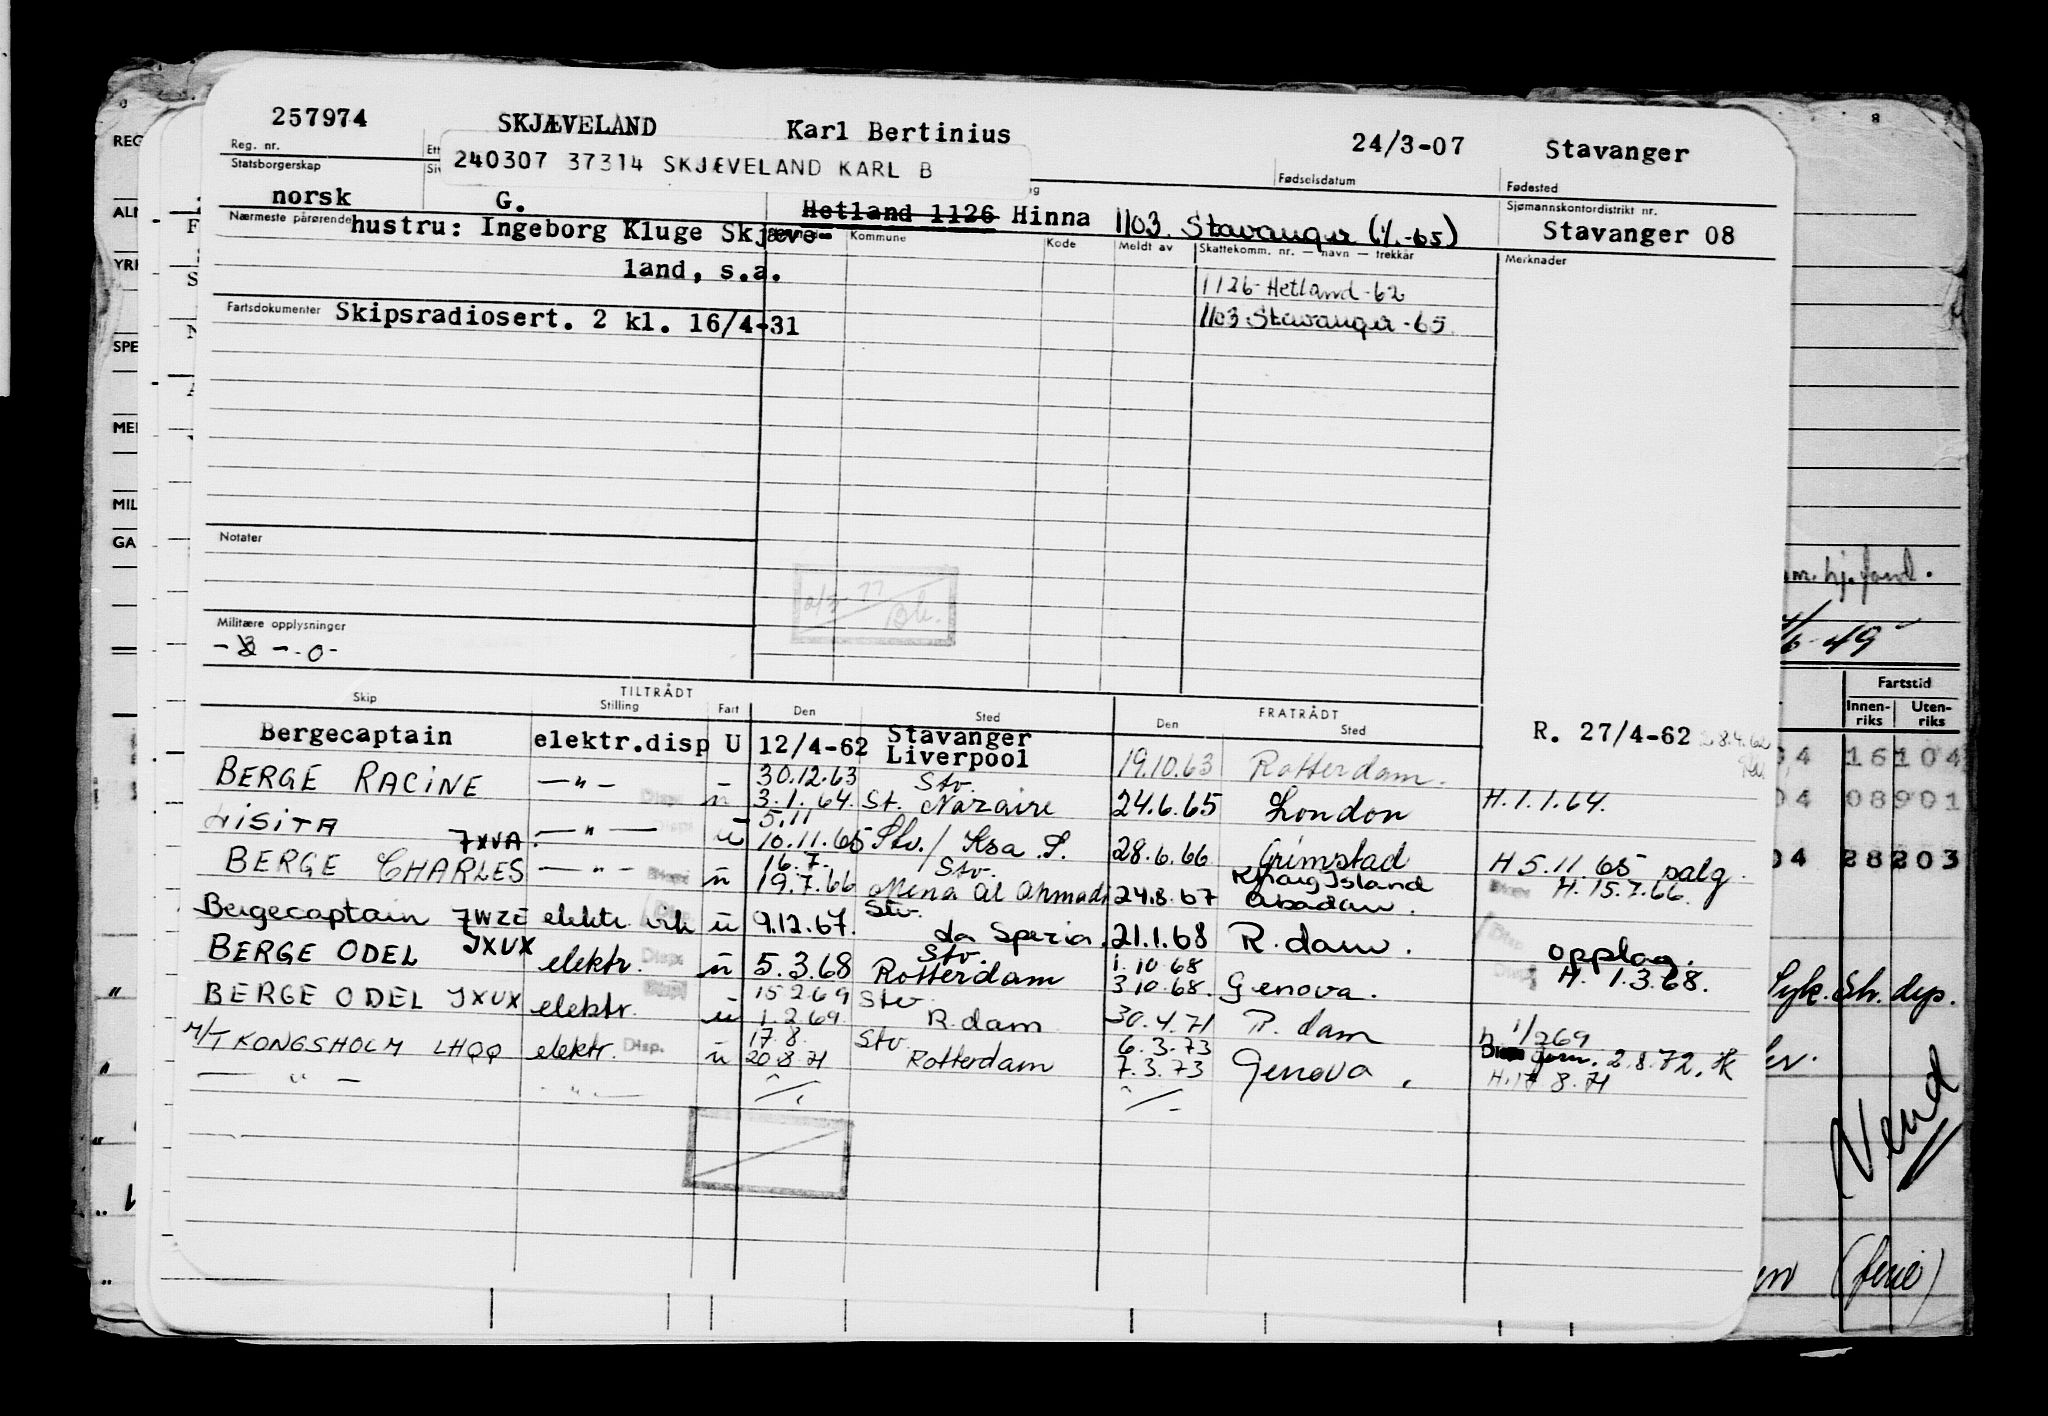 257974 SKJÆVELAND Karl Bertinius 24/3-07 Stavanger
Reg. nr. Fødselsdatum Fødested
240307 37314 SKJÆVELAND KARL B
Statsborgerskap
norsk G. Hetland 1126 Hinna 1103 Stavanger (1/1-65)
Sjømannskontordistrikt nr.
Stavanger 08
Nærmeste pårørende hustru: Ingeborg Kluge Skjæve-
land, s.a.
Kommune Kode Meldt av Skattekomm. nr. — navn — trekkår Merknader
1126-Hetland-62
1103 Stavanger-65.
Fartsdokumenter Skipsradiosert. 2 kl. 16/4-31
Notater
Militære opplysninger
-0-
TILTRÅDT FRATRÅDT
Skip Stilling Fart Den Sted Den Sted
Bergecaptain elektr.disp U 12/4-62 Stavanger Liverpool 19.10.63 Rotterdam. R. 27/4-62
BERGE RACINE —"— ü 30.12.63 3.1.64. Stv. St. Nazaire 24.6.65 London H.1.1.64.
LISITA —"— ü 5.11 10.11.65 Stv./ 28.6.66 Grimstad H 5.11.65 salg.
BERGE CHARLES 7XVA. —"— ü 16.7. 19.7.66 Stv. Mena al Ahmadi 24.8.67 Kharg Island Abadan. H. 15.7.66.
Bergecaptain JWZE elektr. ü 9.12.67. Stv. La Spezia. 21.1.68 R.dam. opplag.
BERGE ODEL JXUX elektr. Disp. ü 5.3.68 Stv. Rotterdam 1.10.68 3.10.68. Genova. H. 1.3.68.
BERGE ODEL JXUX elektr. ü 15.2.69 1.2.69. Stv. R.dam 30.4.71 R.dam 1/2 69
M/T KONGSHOLM LHQQ elektr. Disp. ü 17.8. 20.8.71 Stv. Rotterdam 6.3.73 7.3.73 Genova. 2.8.72.
—"— —"— H.17 8.71
REG
ALM
YRK
SPE
MEI
MIL
GA
Fartstid
Innen-riks Uten-riks
04 16 104
04 08 901
04 28 203
Vend
(ferie)